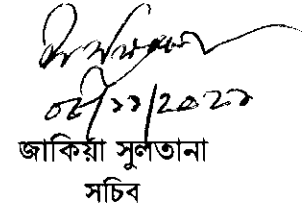 ০৮/১১/২০২১
জাকিয়া সুলতানা
সচিব